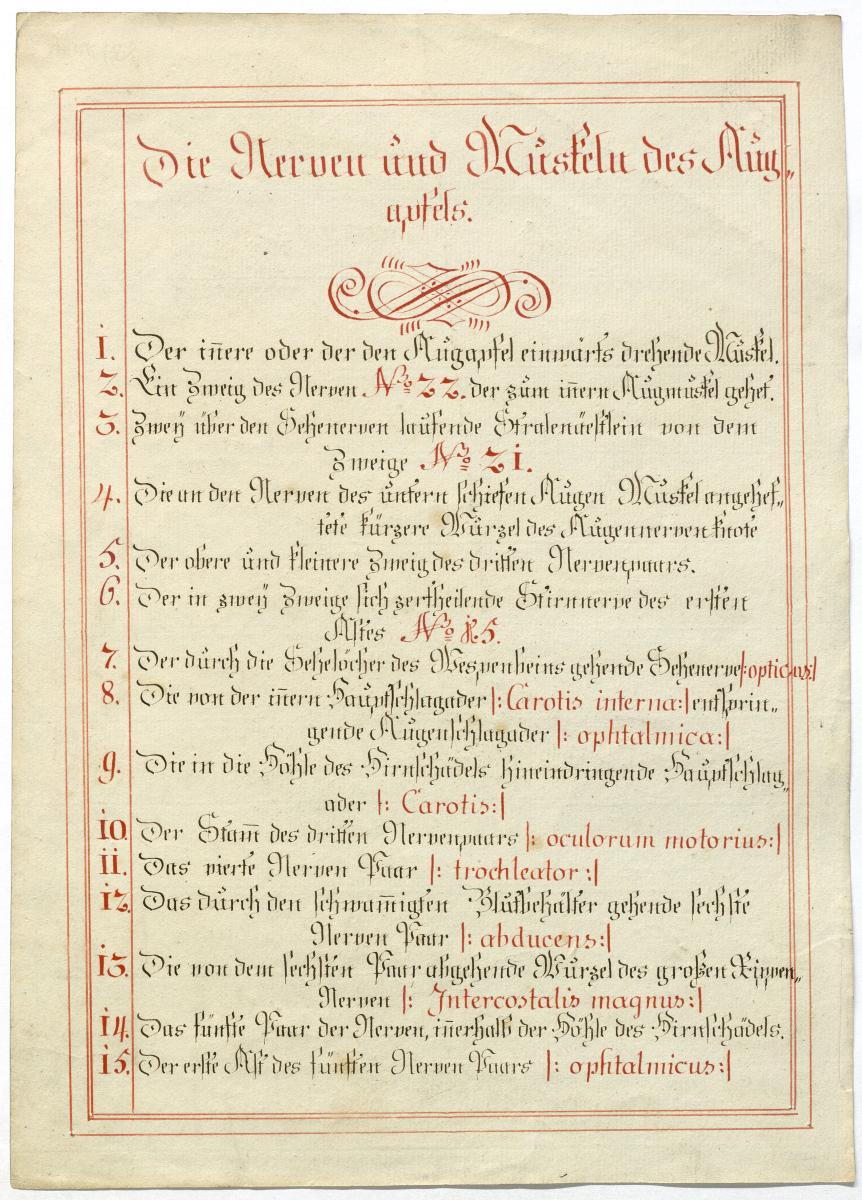 Die Nerven und Muskeln des Aug„
apfels.
1. Der iñere oder der den Augapfel einwärts drehende Muskel.
2. Ein Zweig des Nerven No 22. der zum iñern Augmuskel gehet.
3. Zweÿ über den Sehenerven laufende Stralenäestlein von dem
Zweige No 21.
4. Die an den Nerven des untern schiefen Augen Muskel angehef„
tete kürzere Wurzel des Augennervenknote
5. Der obere und kleinere Zweig des dritten Nervenpaars.
6. Der in zweÿ Zweige sich zertheilende Stirnnerve des ersten
Astes No 15.
7. Der durch die Sehelöcher des Wespenbeins gehende Sehenerve |: opticus :|
8. Die von der iñern Hauptschlagader |: Carotis interna :| entsprin„
gende Augenschlagader |: ophtalmica :|
9. Die in die Höhle des Hirnschädels hineindringende Hauptschlag„
ader |: Carotis :|
10. Der Stam̃ des dritten Nervenpaars |: oculorum motorius :|
11. Das vierte Nerven Paar |: trochleator :|
12. Das durch den schwam̃igten Blutbehälter gehende sechste
Nerven Paar |: abducens :|
13. Die von dem sechsten Paar abgehende Wurzel des großen Rippen„
Nerven |: Intercostalis magnus :|
14. Das fünfte Paar der Nerven, iñerhalb der Höhle des Hirnschädels.
15. Der erste Ast des fünften Nerven Paars |: ophtalmicus :|